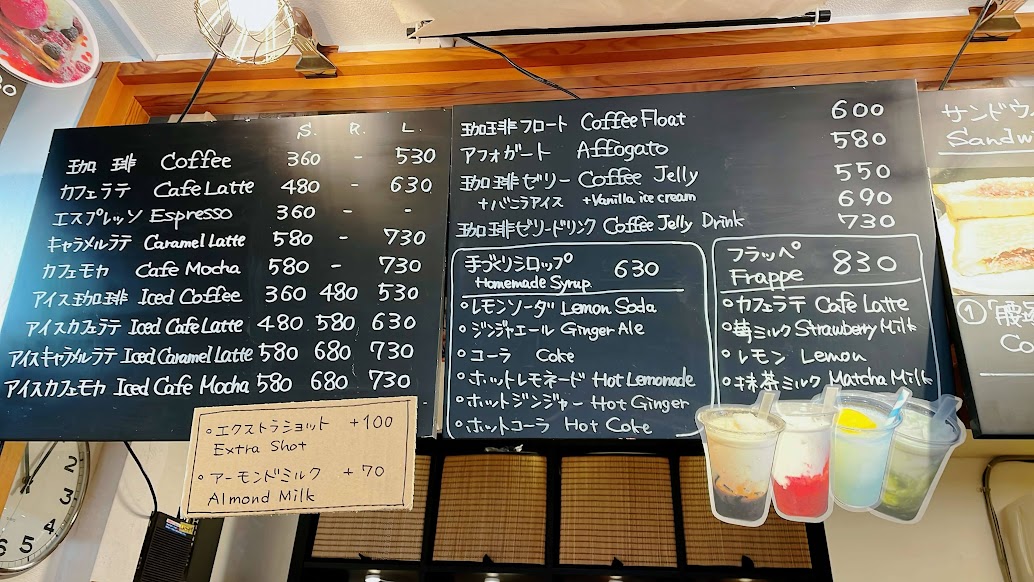 S. R. L.
珈琲 Coffee 360 - 530
カフェラテ Cafe Latte 480 - 630
エスプレッソ Espresso 360 - -
キャラメルラテ Caramel Latte 580 - 730
カフェモカ Cafe Mocha 580 - 730
アイス珈琲 Iced Coffee 360 480 530
アイスカフェラテ Iced Cafe Latte 480 580 630
アイスキャラメルラテ Iced Caramel Latte 580 680 730
アイスカフェモカ Iced Cafe Mocha 580 680 730
・エクストラショット +100
Extra Shot
・アーモンドミルク +70
Almond Milk
珈琲フロート Coffee Float 600
アフォガート Affogato 580
珈琲ゼリー Coffee Jelly 550
+バニラアイス +Vanilla ice cream 690
珈琲ゼリードリンク Coffee Jelly Drink 730
手づくりシロップ 630
Homemade Syrup.
・レモンソーダ Lemon Soda
・ジンジャエール Ginger Ale
・コーラ Coke
・ホットレモネード Hot Lemonade
・ホットジンジャー Hot Ginger
・ホットコーラ Hot Coke
フラッペ 830
Frappe
・カフェラテ Cafe Latte
・苺ミルク Strawberry Milk
・レモン Lemon
・抹茶ミルク Matcha Milk
サンドウ
Sandw
①「腰塚
Co
2
3
4
5
6